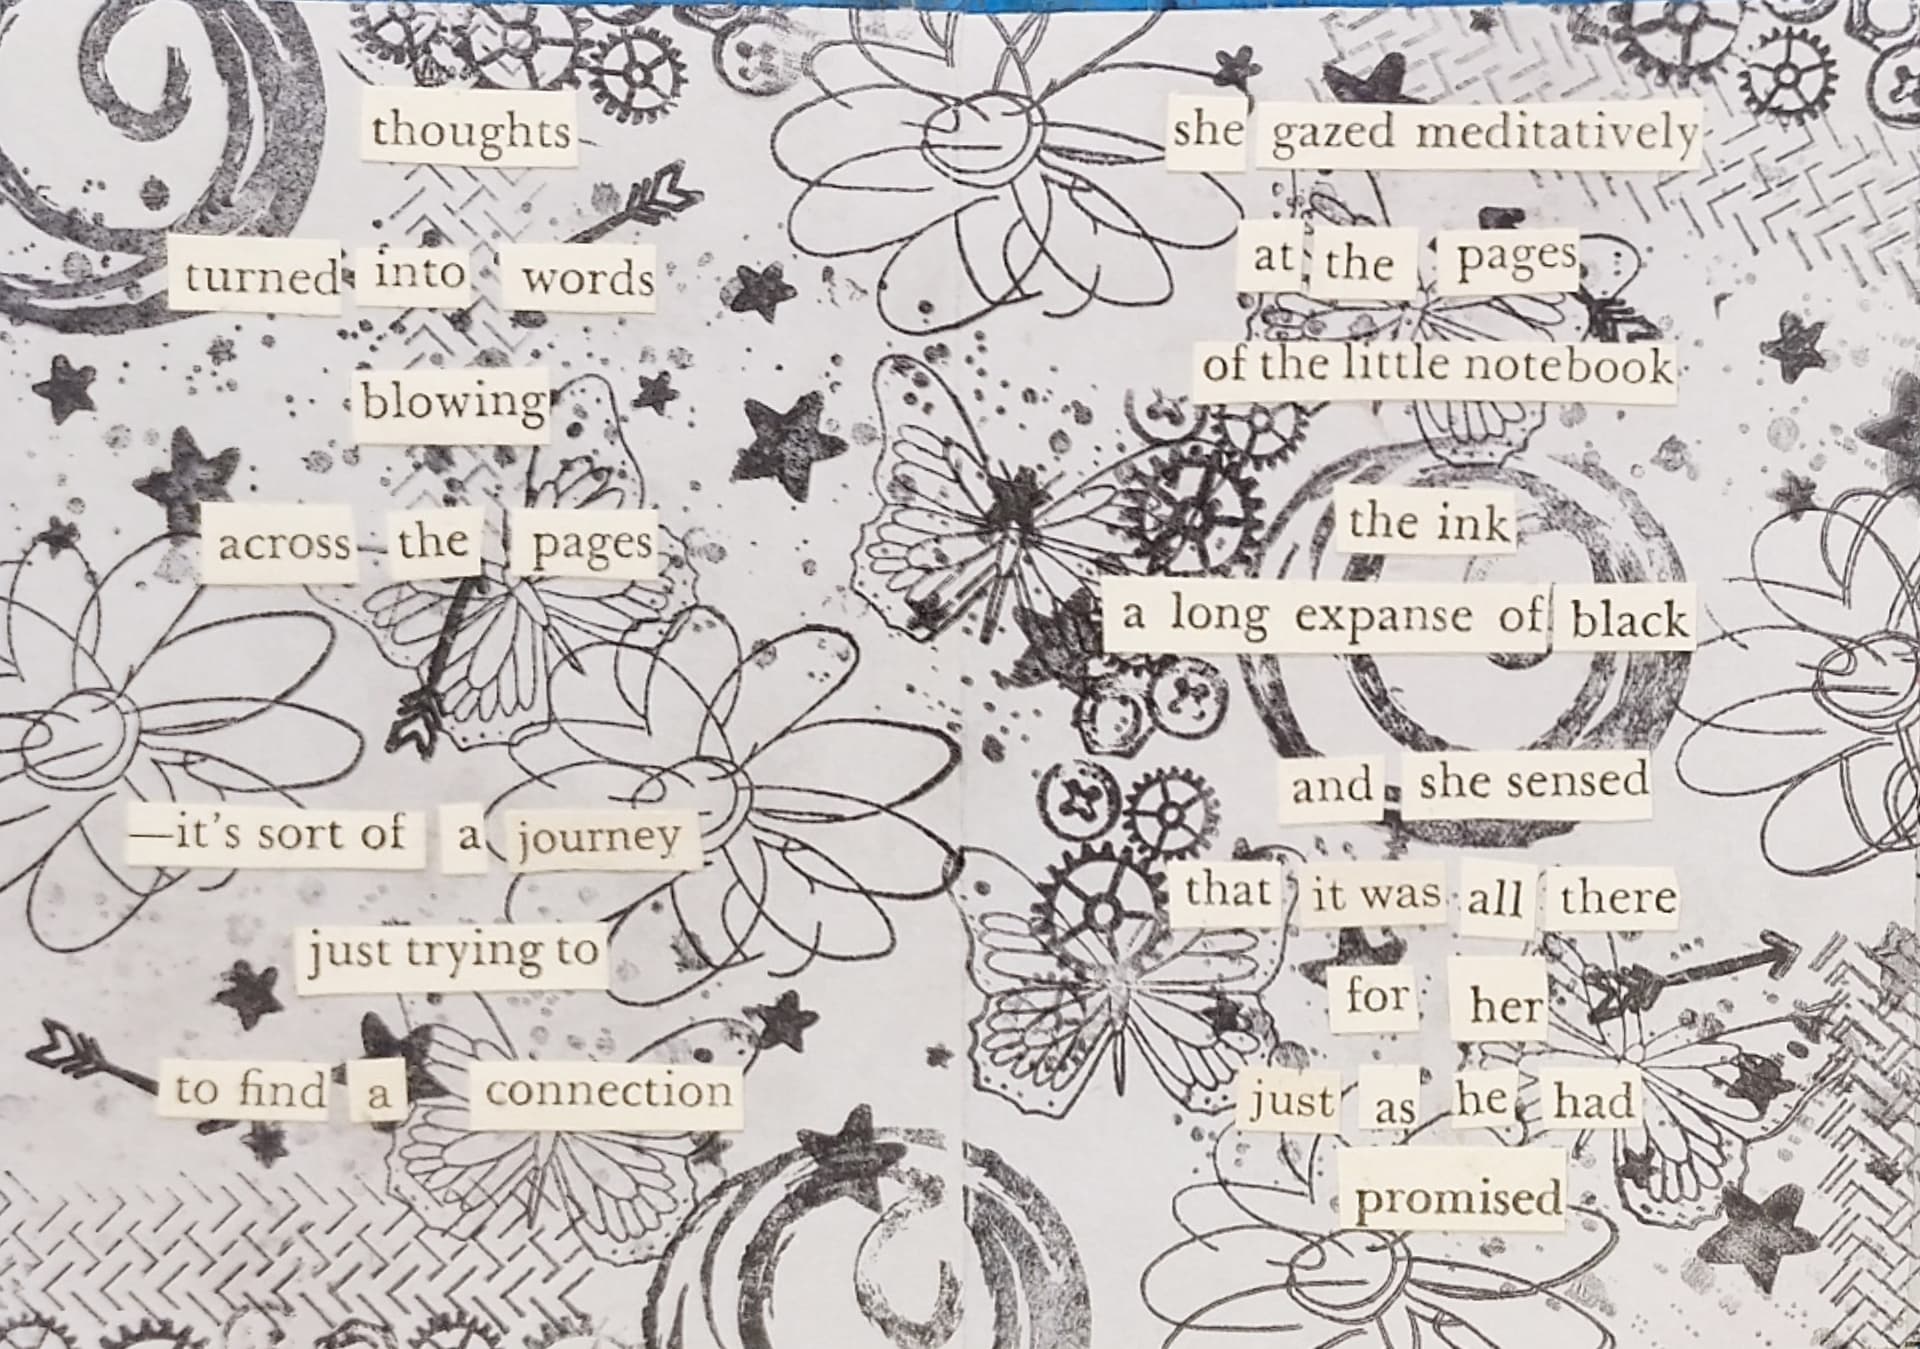 thoughts
turned into words
blowing
across the pages
—it's sort of a journey
just trying to
to find a connection
she gazed meditatively
at the pages
of the little notebook
the ink
a long expanse of black
and she sensed
that it was all there
for her
just as he had
promised